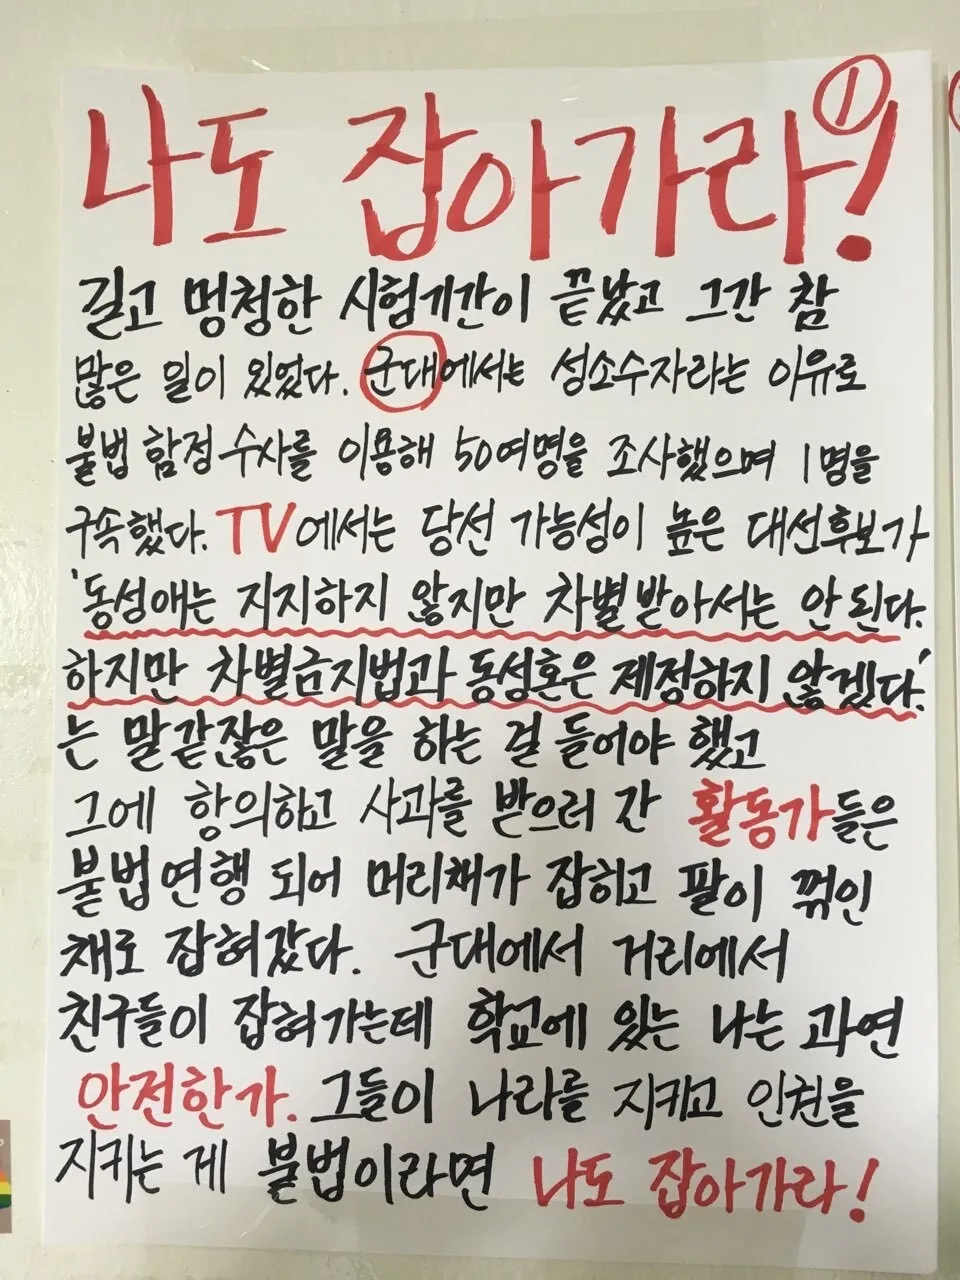 ①
나도 잡아가라!
길고 멍청한 시험기간이 끝났고 그간 참
많은 일이 있었다. 군대에서는 성소수자라는 이유로
불법 함정수사를 이용해 50여명을 조사했으며 1명을
구속했다. TV에서는 당선 가능성이 높은 대선후보가
'동성애는 지지하지 않지만 차별받아서는 안 된다.
하지만 차별금지법과 동성혼은 제정하지 않겠다.'
는 말같잖은 말을 하는 걸 들어야 했고
그에 항의하고 사과를 받으러 간 활동가들은
불법연행 되어 머리채가 잡히고 팔이 꺾인
채로 잡혀갔다. 군대에서 거리에서
친구들이 잡혀가는데 학교에 있는 나는 과연
안전한가. 그들이 나라를 지키고 인권을
지키는 게 불법이라면 나도 잡아가라!